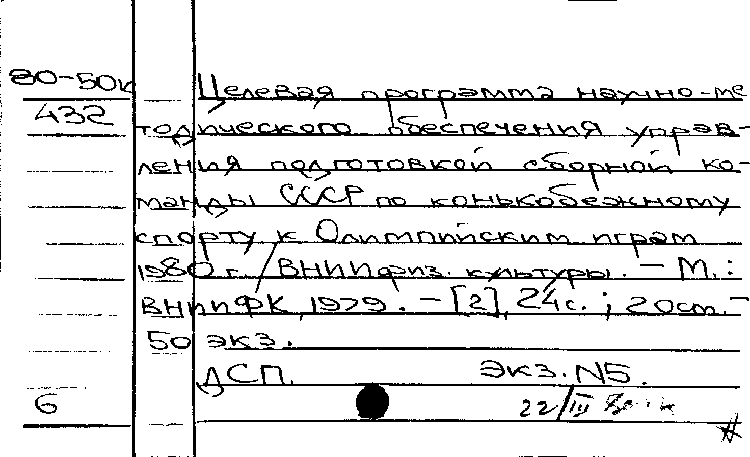 80-50к
Целевая программа научно-ме
432
тодического обеспечения управ-
ления подготовкой сборной ко-
манды СССР по конькобежному
спорту к Олимпийским играм
1980 г. / ВНИИ физ. культуры. - М.:
ВНИИФК, 1979. - [2], 24 с.; 20 см. -
50 экз.
ДСП. Экз. N5.
6
22/III